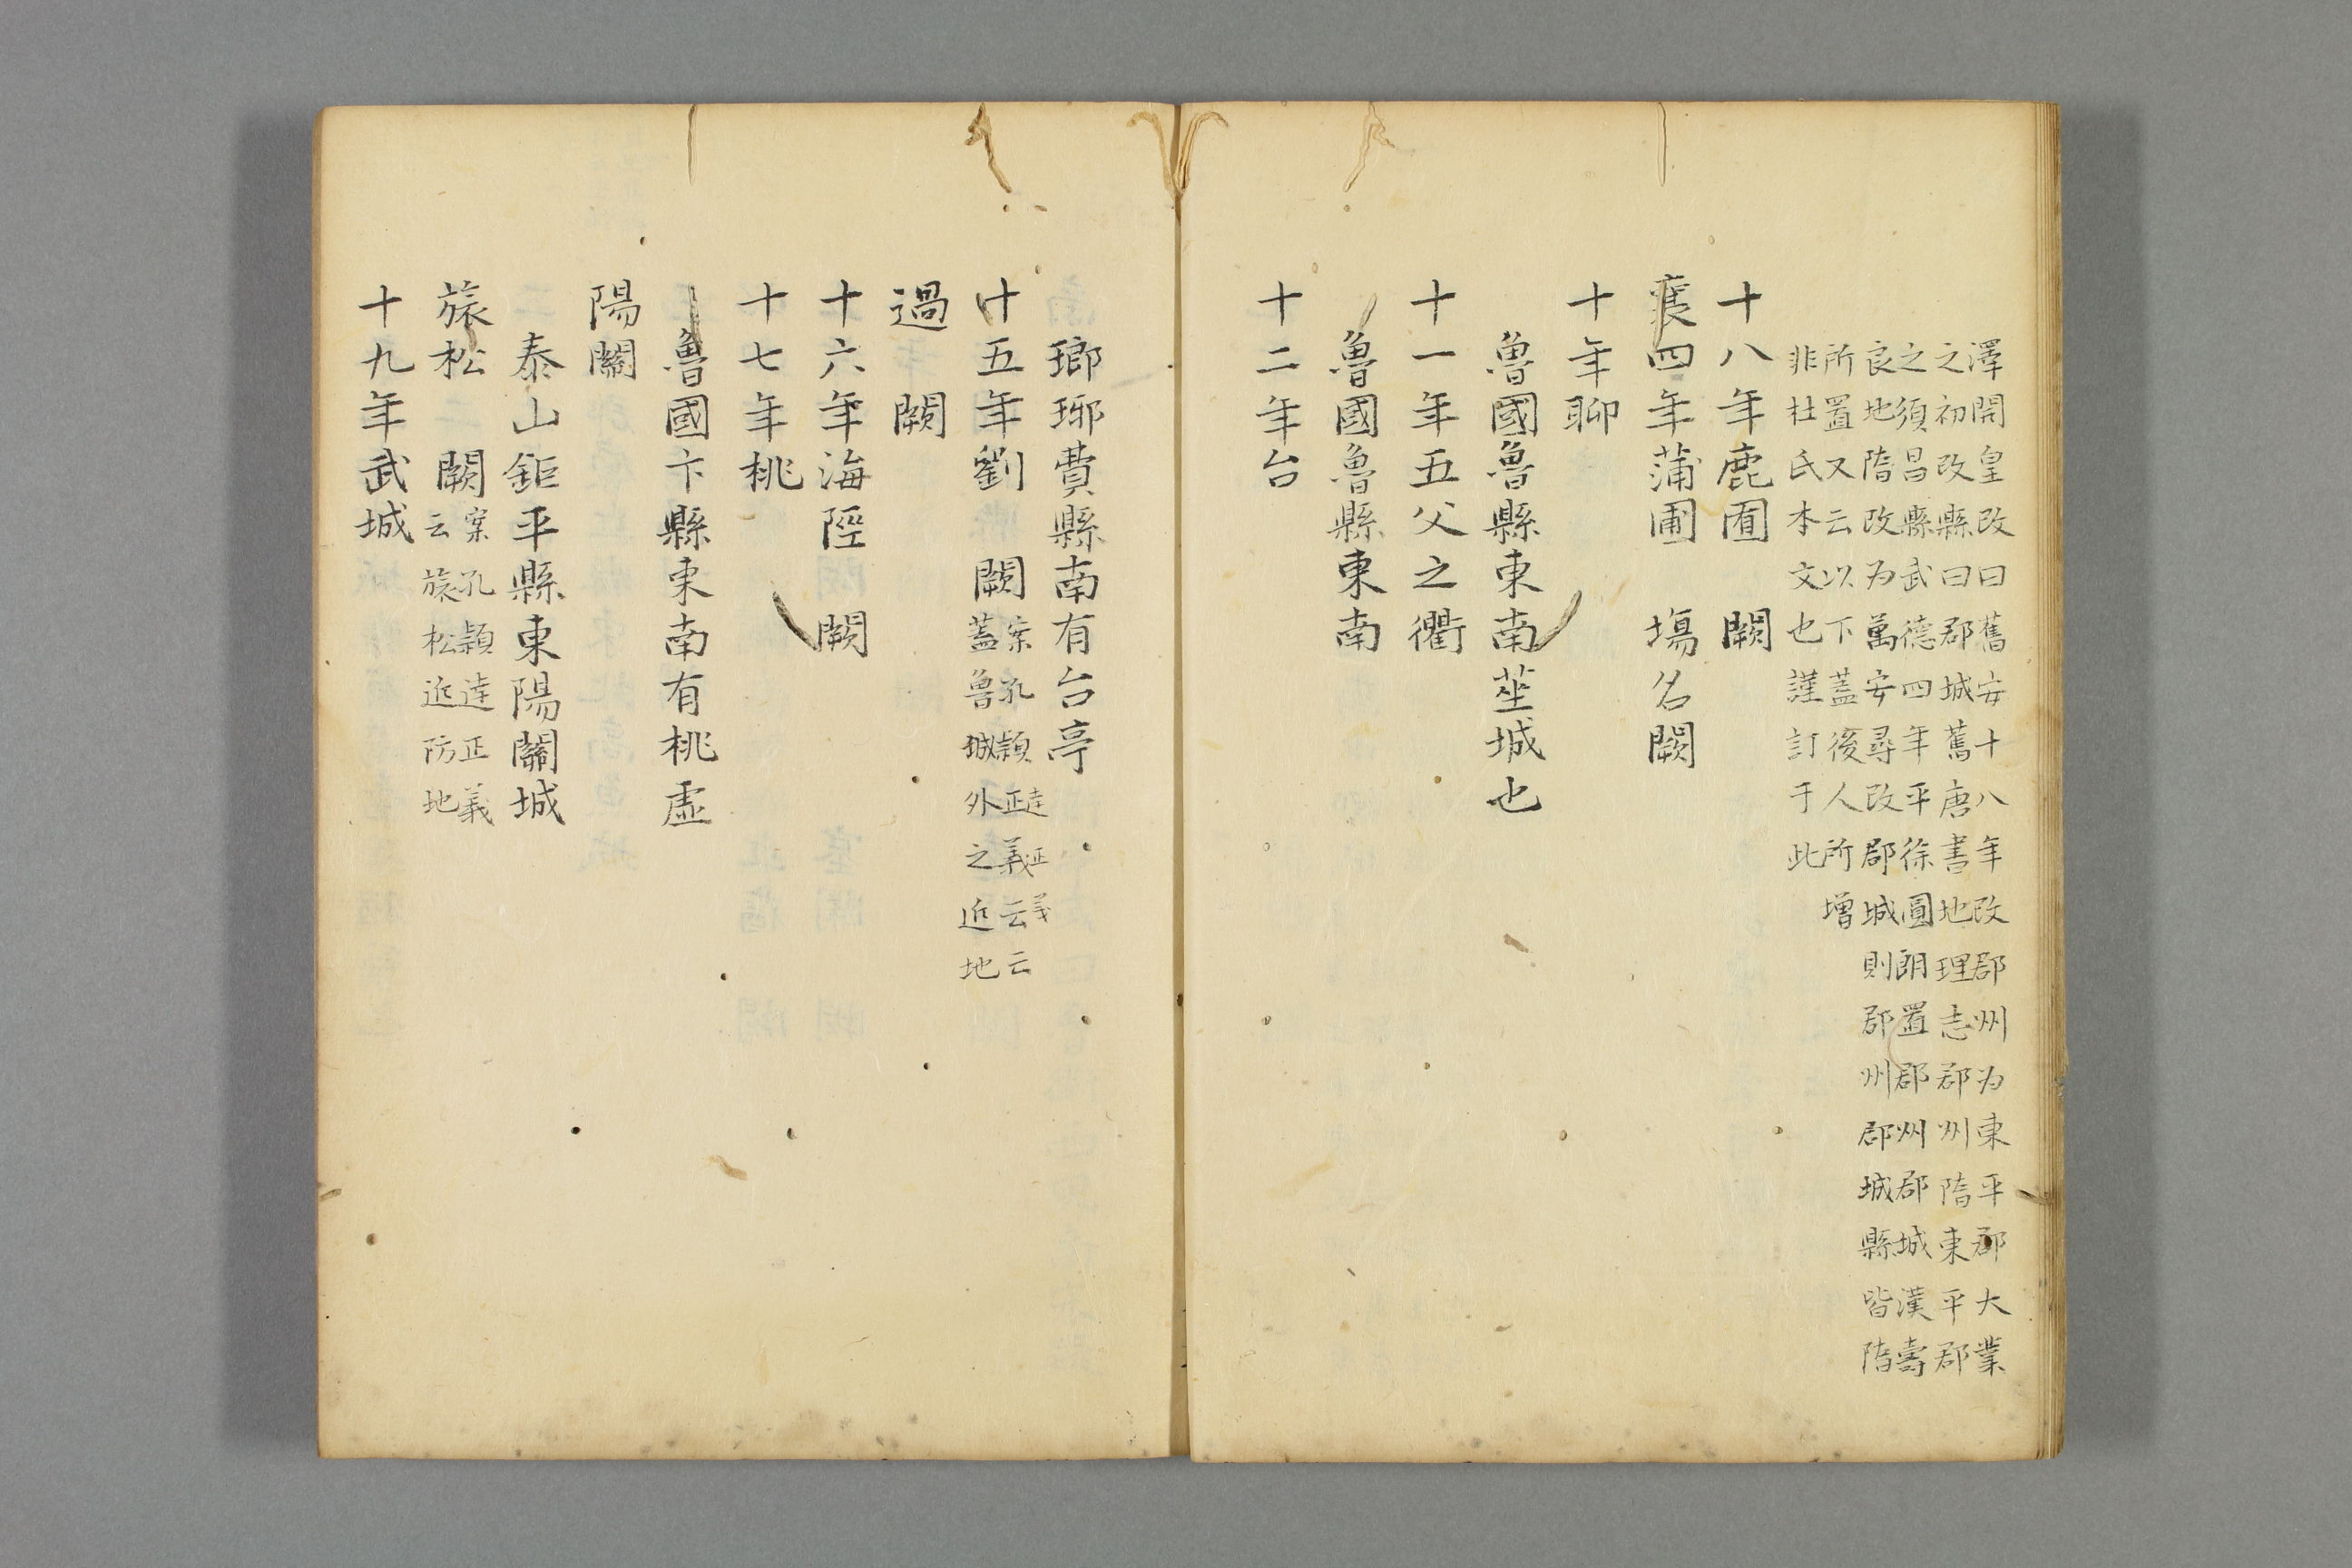 澤開皇改曰舊安十八年改郡州为東平郡大業
之初改縣曰郡城舊唐書地理志郡州隋東平郡
之須昌縣武德四年平徐圓朗置郡州郡城漢壽
良地隋改为萬安尋改郡城則郡州郡城縣皆隋
所置又云以下蓋後人所增
非杜氏本文也謹訂于此
十八年鹿囿　闕
襄四年蒲圃　塲名闕
十年聊
魯國魯縣東南莝城也
十一年五父之衢
魯國魯縣東南
十二年台
瑯琊費縣南有台亭
十五年劉　闕案孔頴達正義云蓋魯城外之近地
過　闕
十六年海陘　闕
十七年桃
魯國卞縣東南有桃虛
陽關
泰山鉅平縣東陽關城
旅松　闕案孔頴達正義云旅松近防地
十九年武城